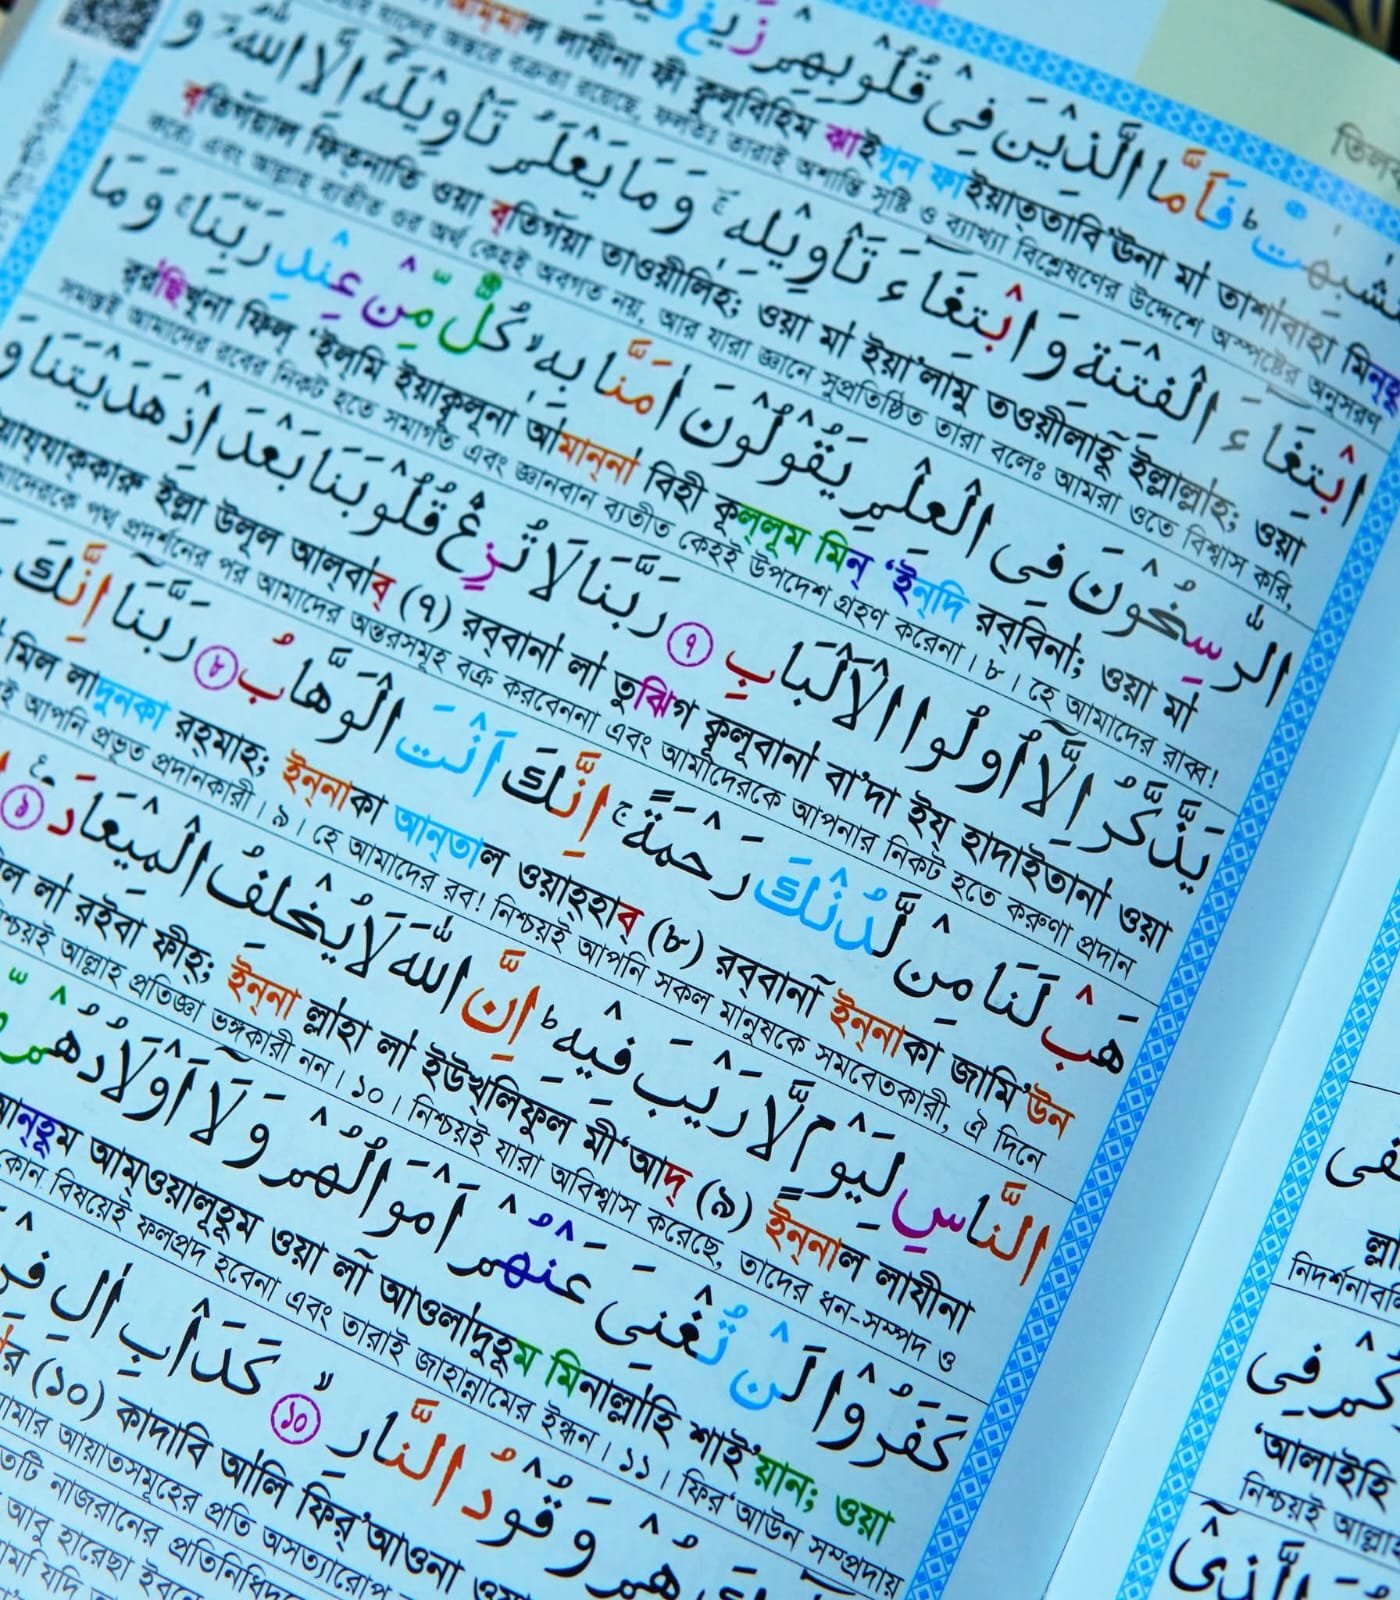 فَاَمَّا الَّذِيْنَ فِيْ قُلُوْبِهِمْ زَيْغٌ
লাযীনা ফী ক্বুলূবিহিম ঝাইগুন ফাইয়াত্তাবি‘ঊনা মা তাশাবাহা মিনহু
অন্তরে বক্রতা রয়েছে, ফলতঃ তারাই অশান্তি সৃষ্টি ও ব্যাখ্যা বিশ্লেষণের উদ্দেশে অস্পষ্টের অনুসরণ
ابْتِغَآءَ الْفِتْنَةِ وَابْتِغَآءَ تَاْوِيْلِهٖ ۚ وَمَا يَعْلَمُ تَاْوِيْلَهٗٓ اِلَّا اللّٰهُ ۘ وَ
ব্তিগাঁয়াল ফিত্নাতি ওয়া ব্তিগাঁয়া তাওয়ীলিহ; ওয়া মা ইয়া‘লামু তাওয়ীলাহূঁ ইল্লাল্লাহ; ওয়া
করে; এবং আল্লাহ ব্যতীত ওর অর্থ কেহই অবগত নয়, আর যারা জ্ঞানে সুপ্রতিষ্ঠিত তারা বলেঃ আমরা ওতে বিশ্বাস করি,
الرّٰسِخُوْنَ فِي الْعِلْمِ يَقُوْلُوْنَ اٰمَنَّا بِهٖ ۙ كُلٌّ مِّنْ عِنْدِ رَبِّنَا ۚ وَمَا
রর‍াছিখূনা ফিল্ ‘ইল্মি ইয়াক্বূলূনা আমান্না বিহী কুল্লুম মিন্ ‘ইন্দি রব্বিনা; ওয়া মা
সমস্তই আমাদের রবের নিকট হতে সমাগত এবং জ্ঞানবান ব্যতীত কেহই উপদেশ গ্রহণ করেনা। ৮। হে আমাদের রাব্ব!
يَذَّكَّرُ اِلَّآ اُولُوا الْاَلْبَابِ ৭ رَبَّنَا لَا تُزِغْ قُلُوْبَنَا بَعْدَ اِذْ هَدَيْتَنَا وَ
য্যাক্কারু ইল্লা উলূল আল্বাব্ (৭) রব্বানা লা তুঝিগ ক্বুলূবানা বা‘দা ইয্ হাদাইতানা ওয়া
পথ প্রদর্শনের পর আমাদের অন্তরসমূহ বক্র করবেননা এবং আমাদেরকে আপনার নিকট হতে করুণা প্রদান
هَبْ لَنَا مِنْ لَّدُنْكَ رَحْمَةً ۚ اِنَّكَ اَنْتَ الْوَهَّابُ ৮ رَبَّنَآ اِنَّكَ
মিল লাদুনকা রহ্মাহ; ইন্নাকা আন্তাল ওয়াহ্হাব্ (৮) রব্বানা ইন্নাকা জামি‘উন
আপনি প্রভূত প্রদানকারী। ৯। হে আমাদের রব! নিশ্চয়ই আপনি সকল মানুষকে সমবেতকারী, ঐ দিনে
النَّاسِ لِيَوْمٍ لَّا رَيْبَ فِيْهِ ؕ اِنَّ اللّٰهَ لَا يُخْلِفُ الْمِيْعَادَ ৯
লা রইবা ফীহ্; ইন্না ল্লাহা লা ইউখ্লিফুল মী‘আদ্ (৯) ইন্নাল লাযীনা
আল্লাহ প্রতিজ্ঞা ভঙ্গকারী নন। ১০। নিশ্চয়ই যারা অবিশ্বাস করেছে, তাদের ধন-সম্পদ ও
كَفَرُوْا لَنْ تُغْنِيَ عَنْهُمْ اَمْوَالُهُمْ وَلَآ اَوْلَادُهُمْ
আন্হুম আম্ওয়ালুহুম ওয়া লা আওলাদুহুম মিনাল্লাহি শাইয়ান; ওয়া
কোন বিষয়েই ফলপ্রদ হবেনা এবং তারাই জাহান্নামের ইন্ধন। ১১। ফির‘আউন সম্প্রদায়
هُمْ وَقُوْدُ النَّارِ ১০ كَدَاْبِ اٰلِ
(১০) কাদাবি আলি ফির্‘আওনা
আয়াতসমূহের প্রতি অসত্যারোপ
নাজরানের
আবু হারেছা ইবনে
ল্লা
নিদর্শনাব
‘আলাইহি
নিশ্চয়ই আল্লাহ